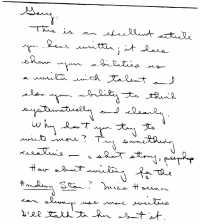 Gary:
This is an excellent article
you have written; it does
show your abilities as
a writer with talent and
also your ability to think
systematically and clearly.
Why don't you try to
write more? Try something
creative — a short story, perhaps
How about writing for the
Star? Miss
can always use more writers
I'll talk to her about it.